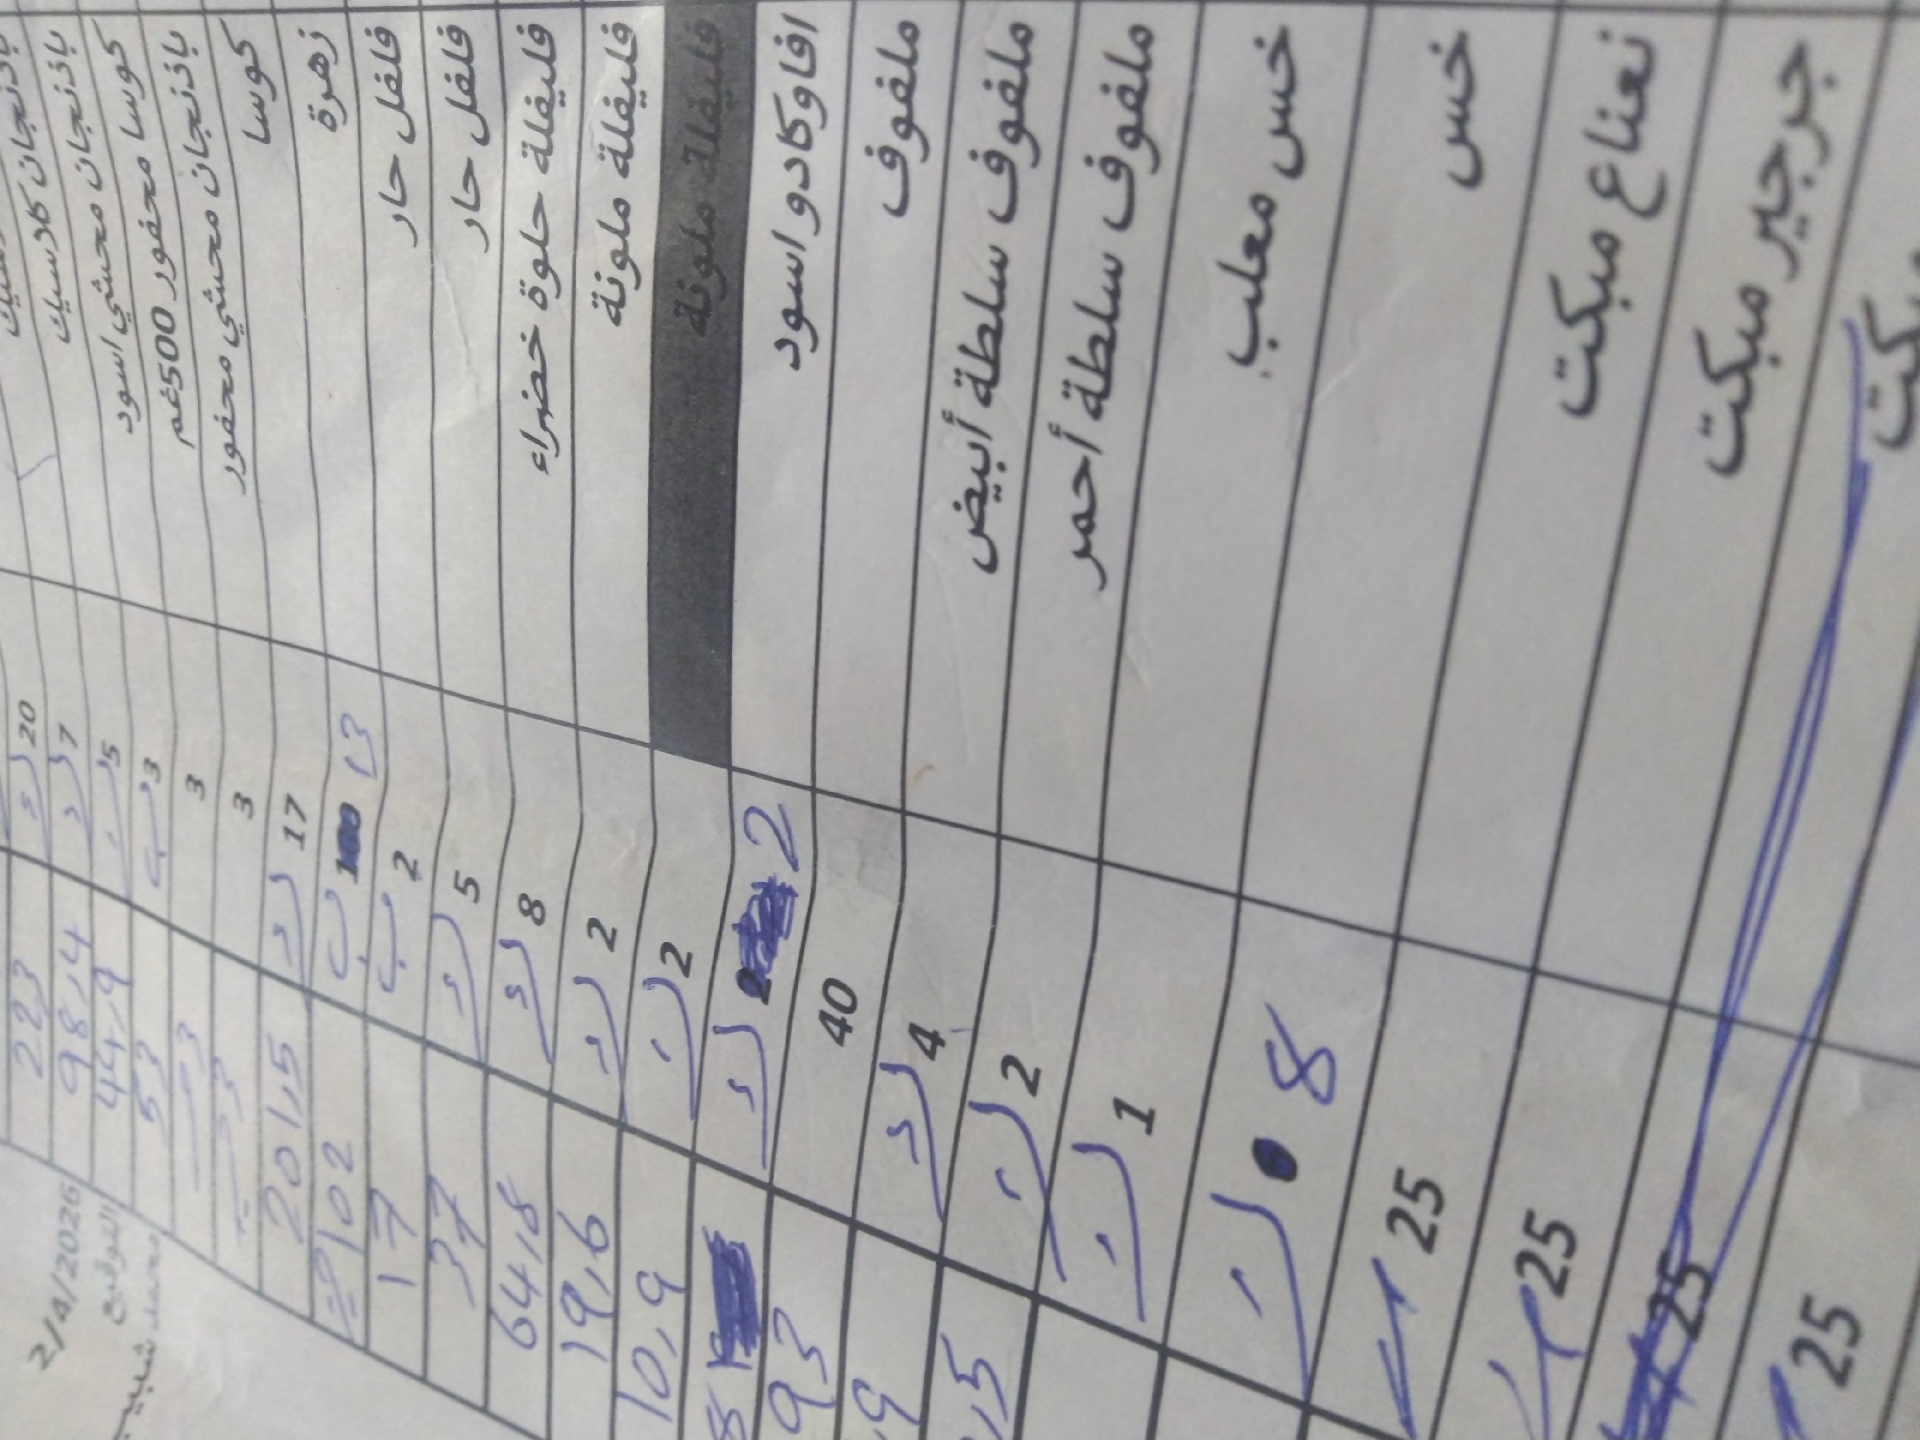 20 223
7 98,4
باذنجان كلاسيك 5 44,9
باذنجان محشي اسود 3 53
كوسا محفور 500غم 3
باذنجان محشي محفور 3
كوسا 17 201,5
زهرة 13 102
فلفل حار 2 17
فلفل حار 5 37
فليفلة حلوة خضراء 8 64,8
فليفلة ملونة 2 19,6
فليفلة ملونة 2 10,9
افاوكادو اسود 2 8
ملفوف 40 93
ملفوف سلطة أبيض 4
ملفوف سلطة أحمر 2
خس معلب 1
خس 8
نعناع مبكت 25
جرجير مبكت 25
25
25
2/4/2026
التوقيع
محمد